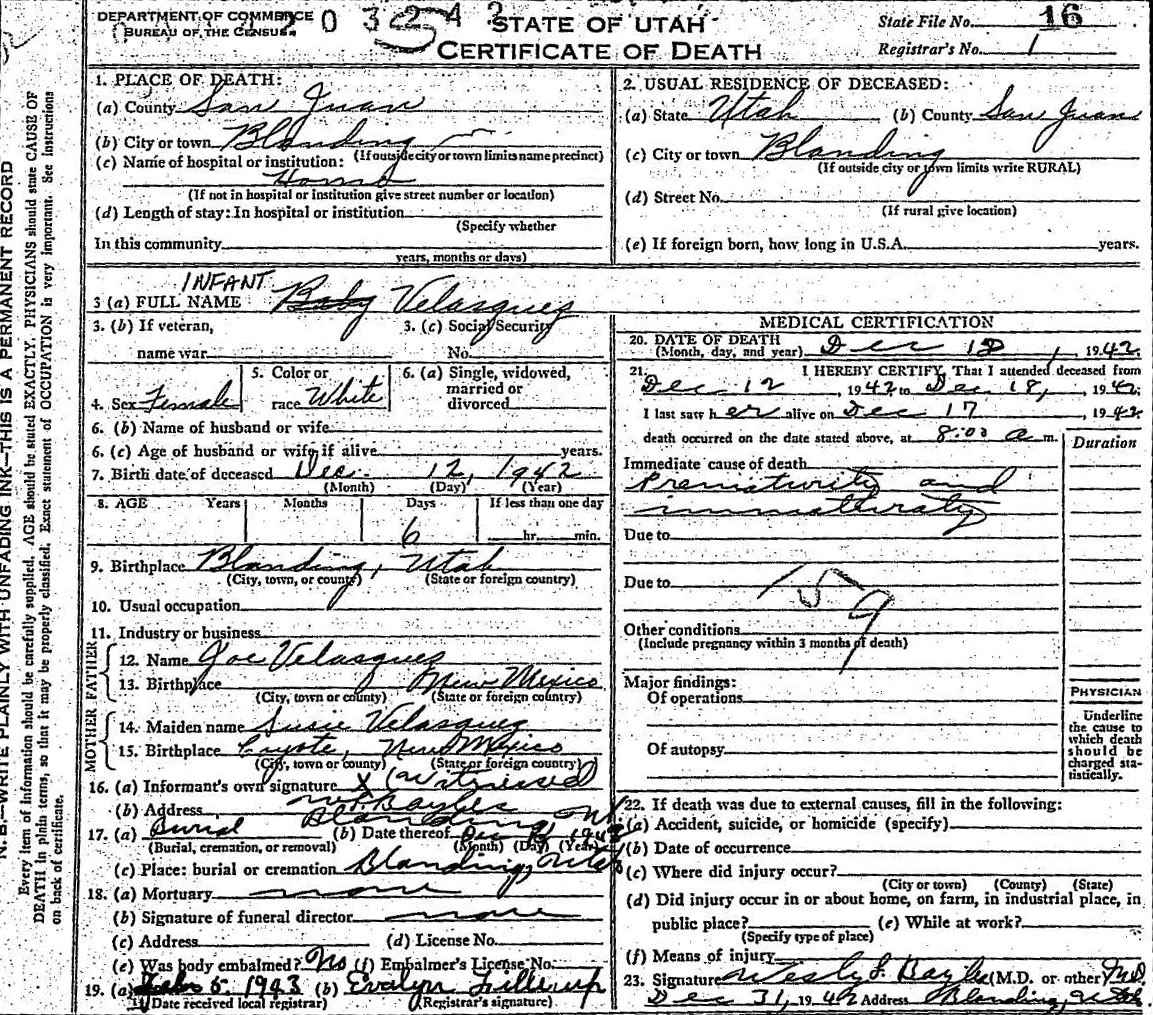 DEPARTMENT OF COMMERCE
BUREAU OF THE CENSUS
STATE OF UTAH
CERTIFICATE OF DEATH
State File No. 16
Registrar's No. 1
N. B.—WRITE PLAINLY WITH UNFADING INK—THIS IS A PERMANENT RECORD
Every item of information should be carefully supplied. AGE should be stated EXACTLY. PHYSICIANS should state CAUSE OF
DEATH in plain terms, so that it may be properly classified. Exact statement of OCCUPATION is very important. See instructions
on back of certificate.
1. PLACE OF DEATH:
(a) County San Juan
(b) City or town Blanding
(If outside city or town limits name precinct)
(c) Name of hospital or institution:
Home
(If not in hospital or institution give street number or location)
(d) Length of stay: In hospital or institution
(Specify whether
In this community
years, months or days)
2. USUAL RESIDENCE OF DECEASED:
(a) State Utah (b) County San Juan
(c) City or town Blanding
(If outside city or town limits write RURAL)
(d) Street No.
(If rural give location)
(e) If foreign born, how long in U.S.A. years.
INFANT
3 (a) FULL NAME Baby Velasquez
3. (b) If veteran,
name war
3. (c) Social Security
No.
4. Sex Female
5. Color or
race White
6. (a) Single, widowed,
married or
divorced
6. (b) Name of husband or wife
6. (c) Age of husband or wife if alive years.
7. Birth date of deceased Dec. 12, 1942
(Month) (Day) (Year)
8. AGE Years Months Days If less than one day
6 hr. min.
9. Birthplace Blanding, Utah
(City, town, or county) (State or foreign country)
10. Usual occupation
11. Industry or business
FATHER
12. Name Joe Velasquez
13. Birthplace New Mexico
(City, town or county) (State or foreign country)
MOTHER
14. Maiden name Susie Velasquez
15. Birthplace Coyote, New Mexico
(City, town or county) (State or foreign country)
16. (a) Informant's own signature X (Witnessed
(b) Address Blanding
17. (a) Burial (b) Date thereof Dec 1942
(Burial, cremation, or removal) (Month) (Day) (Year)
(c) Place: burial or cremation Blanding, Utah
18. (a) Mortuary none
(b) Signature of funeral director none
(c) Address (d) License No.
(e) Was body embalmed? No (f) Embalmer's License No.
19. (a) 1943 (b) Evalyn
(Date received local registrar) (Registrar's signature)
MEDICAL CERTIFICATION
20. DATE OF DEATH
(Month, day, and year) Dec 18, 1942
21. I HEREBY CERTIFY, That I attended deceased from
Dec 12, 1942 to Dec 18, 1942
I last saw her alive on Dec 17, 1942
death occurred on the date stated above, at 8:00 a m.
Duration
Immediate cause of death
Prematurity and
immaturaty
Due to
Due to
159
Other conditions
(Include pregnancy within 3 months of death)
Major findings:
Of operations
Of autopsy
PHYSICIAN
Underline
the cause to
which death
should be
charged sta-
tistically.
22. If death was due to external causes, fill in the following:
(a) Accident, suicide, or homicide (specify)
(b) Date of occurrence
(c) Where did injury occur?
(City or town) (County) (State)
(d) Did injury occur in or about home, on farm, in industrial place, in
public place? (e) While at work?
(Specify type of place)
(f) Means of injury
23. Signature Wesly J. Bayles (M.D. or other) M.D.
Dec 31, 1942 Address Blanding, Utah